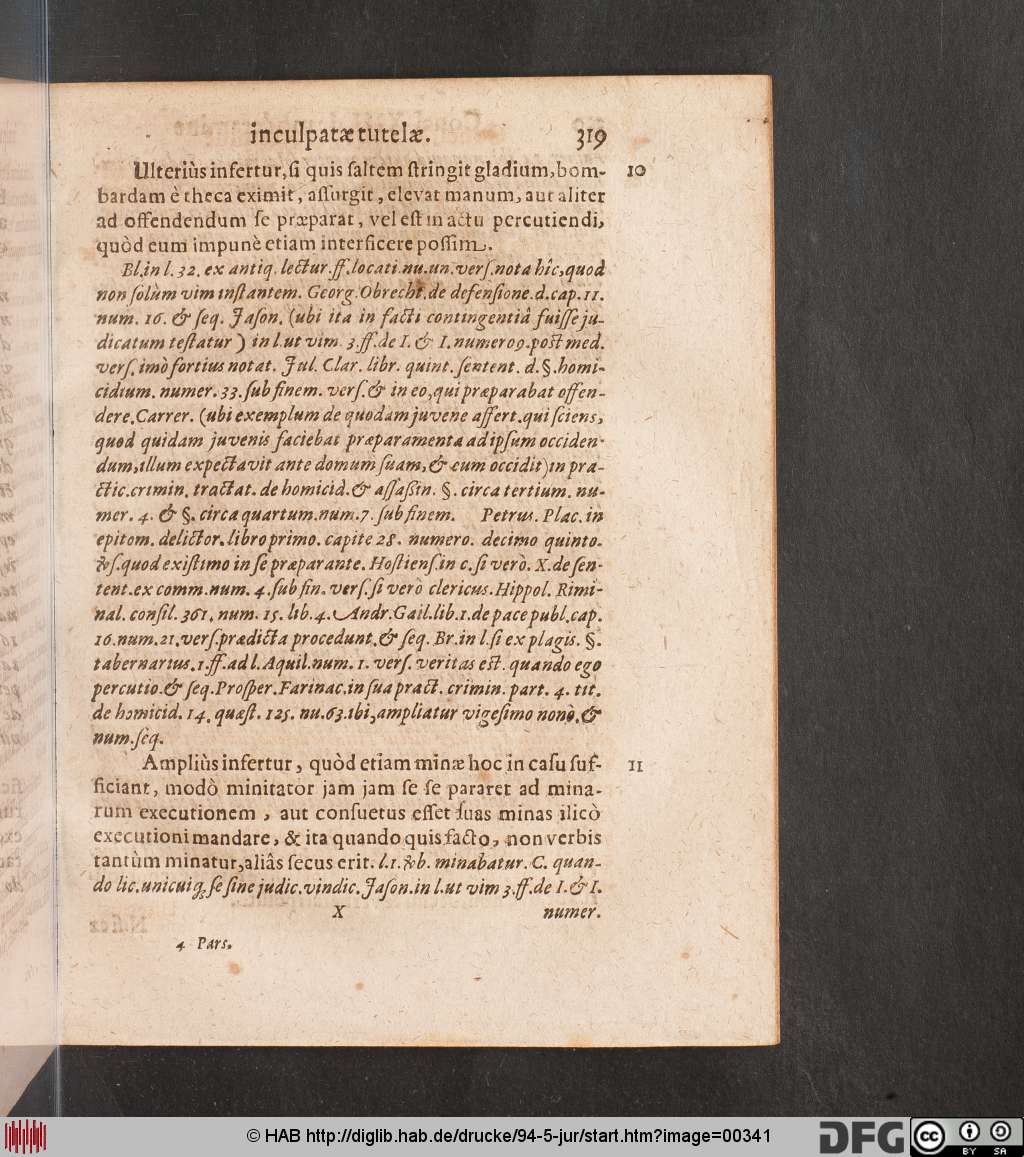 inculpatæ tutelæ. 319
Ulteriùs infertur, ſi quis ſaltem ſtringit gladium, bom- 10
bardam è theca eximit, aſſurgit, elevat manum, aut aliter
ad offendendum ſe præparat, vel eſt in actu percutiendi,
quòd eum impunè etiam interficere poſſim.
Bl. in l. 32. ex antiq. lectur. ff. locati nu. un. verſ. nota hîc, quod
non ſolùm vim inſtantem. Georg. Obrecht. de defenſione. d. cap. 11.
num. 16. & ſeq. Jaſon. (ubi ita in facti contingentiâ fuiſſe ju-
dicatum teſtatur) in l. ut vim 3. ff. de I. & I. numero 9. poſt med.
verſ. imò fortius notat. Jul. Clar. libr. quint. ſentent. d. §. homi-
cidium. numer. 33. ſub finem. verſ. & in eo, qui præparabat offen-
dere. Carrer. (ubi exemplum de quodam juvene affert. qui ſciens,
quod quidam juvenis faciebat præparamenta ad ipſum occiden-
dum, illum expectavit ante domum ſuam, & eum occidit) in pra-
ctic. crimin. tractat. de homicid. & aſſaßin. §. circa tertium. nu-
mer. 4. & §. circa quartum. num. 7. ſub finem. Petrus. Plac. in
epitom. delictor. libro primo. capite 28. numero. decimo quinto.
&ſ. quod exiſtimo in ſe præparante. Hoſtienſ. in c. ſi verò. X. de ſen-
tent. ex comm. num. 4. ſub fin. verſ. ſi verò clericus. Hippol. Rimi-
nal. conſil. 361. num. 15. lib. 4. Andr. Gail. lib. 1. de pace publ. cap.
16. num. 21. verſ. prædicta procedunt. & ſeq. Br. in l. ſi ex plagis. §.
tabernarius. 1. ff. ad l. Aquil. num. 1. verſ. veritas eſt. quando ego
percutio. & ſeq. Proſper. Farinac. in ſua pract. crimin. part. 4. tit.
de homicid. 14. quæſt. 125. nu. 63. ibi, ampliatur vigeſimo nonò. &
num. ſeq.
Ampliùs infertur, quòd etiam minæ hoc in caſu ſuf- 11
ficiant, modò minitator jam jam ſe ſe pararet ad mina-
rum executionem, aut conſuetus eſſet ſuas minas ilicò
executioni mandare, & ita quando quis facto, non verbis
tantùm minatur, aliâs ſecus erit. l. 1. &b. minabatur. C. quan-
do lic. unicuiq; ſe ſine judic. vindic. Jaſon. in l. ut vim 3. ff. de I. & I.
X numer.
4 Pars.
© HAB http://diglib.hab.de/drucke/94-5-jur/start.htm?image=00341
DFG
cc BY SA